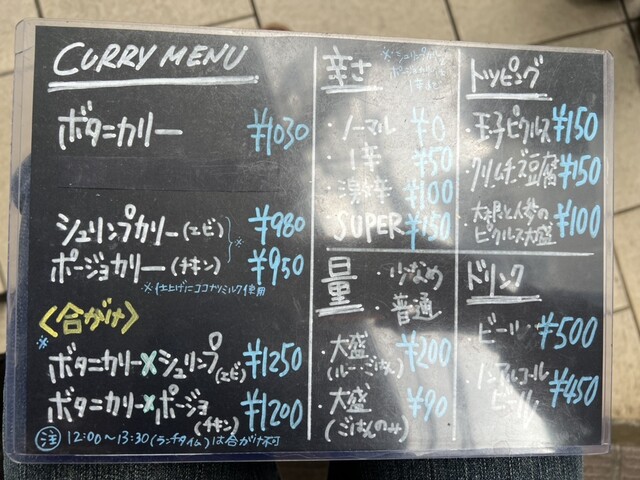 CURRY MENU
ボタニカリー ¥1030
シュリンプカリー(エビ) ¥980
ポージョカリー(チキン) ¥950
※仕上げにココナツミルク使用
<合がけ>
※
ボタニカリー×シュリンプ(エビ) ¥1250
ボタニカリー×ポージョ(チキン) ¥1200
注 12:00〜13:30(ランチタイム)は合がけ不可
辛さ
・ノーマル ¥0
・1辛 ¥50
・激辛 ¥100
SUPER ¥150
量
・少なめ
・普通
・大盛(ルー・ごはん) ¥200
・大盛(ごはんのみ) ¥90
トッピング
・玉子ピクルス ¥150
・クリームチーズ豆腐 ¥150
・大根と人参のピクルス大盛 ¥100
ドリンク
・ビール ¥500
・ノンアルコールビール ¥450